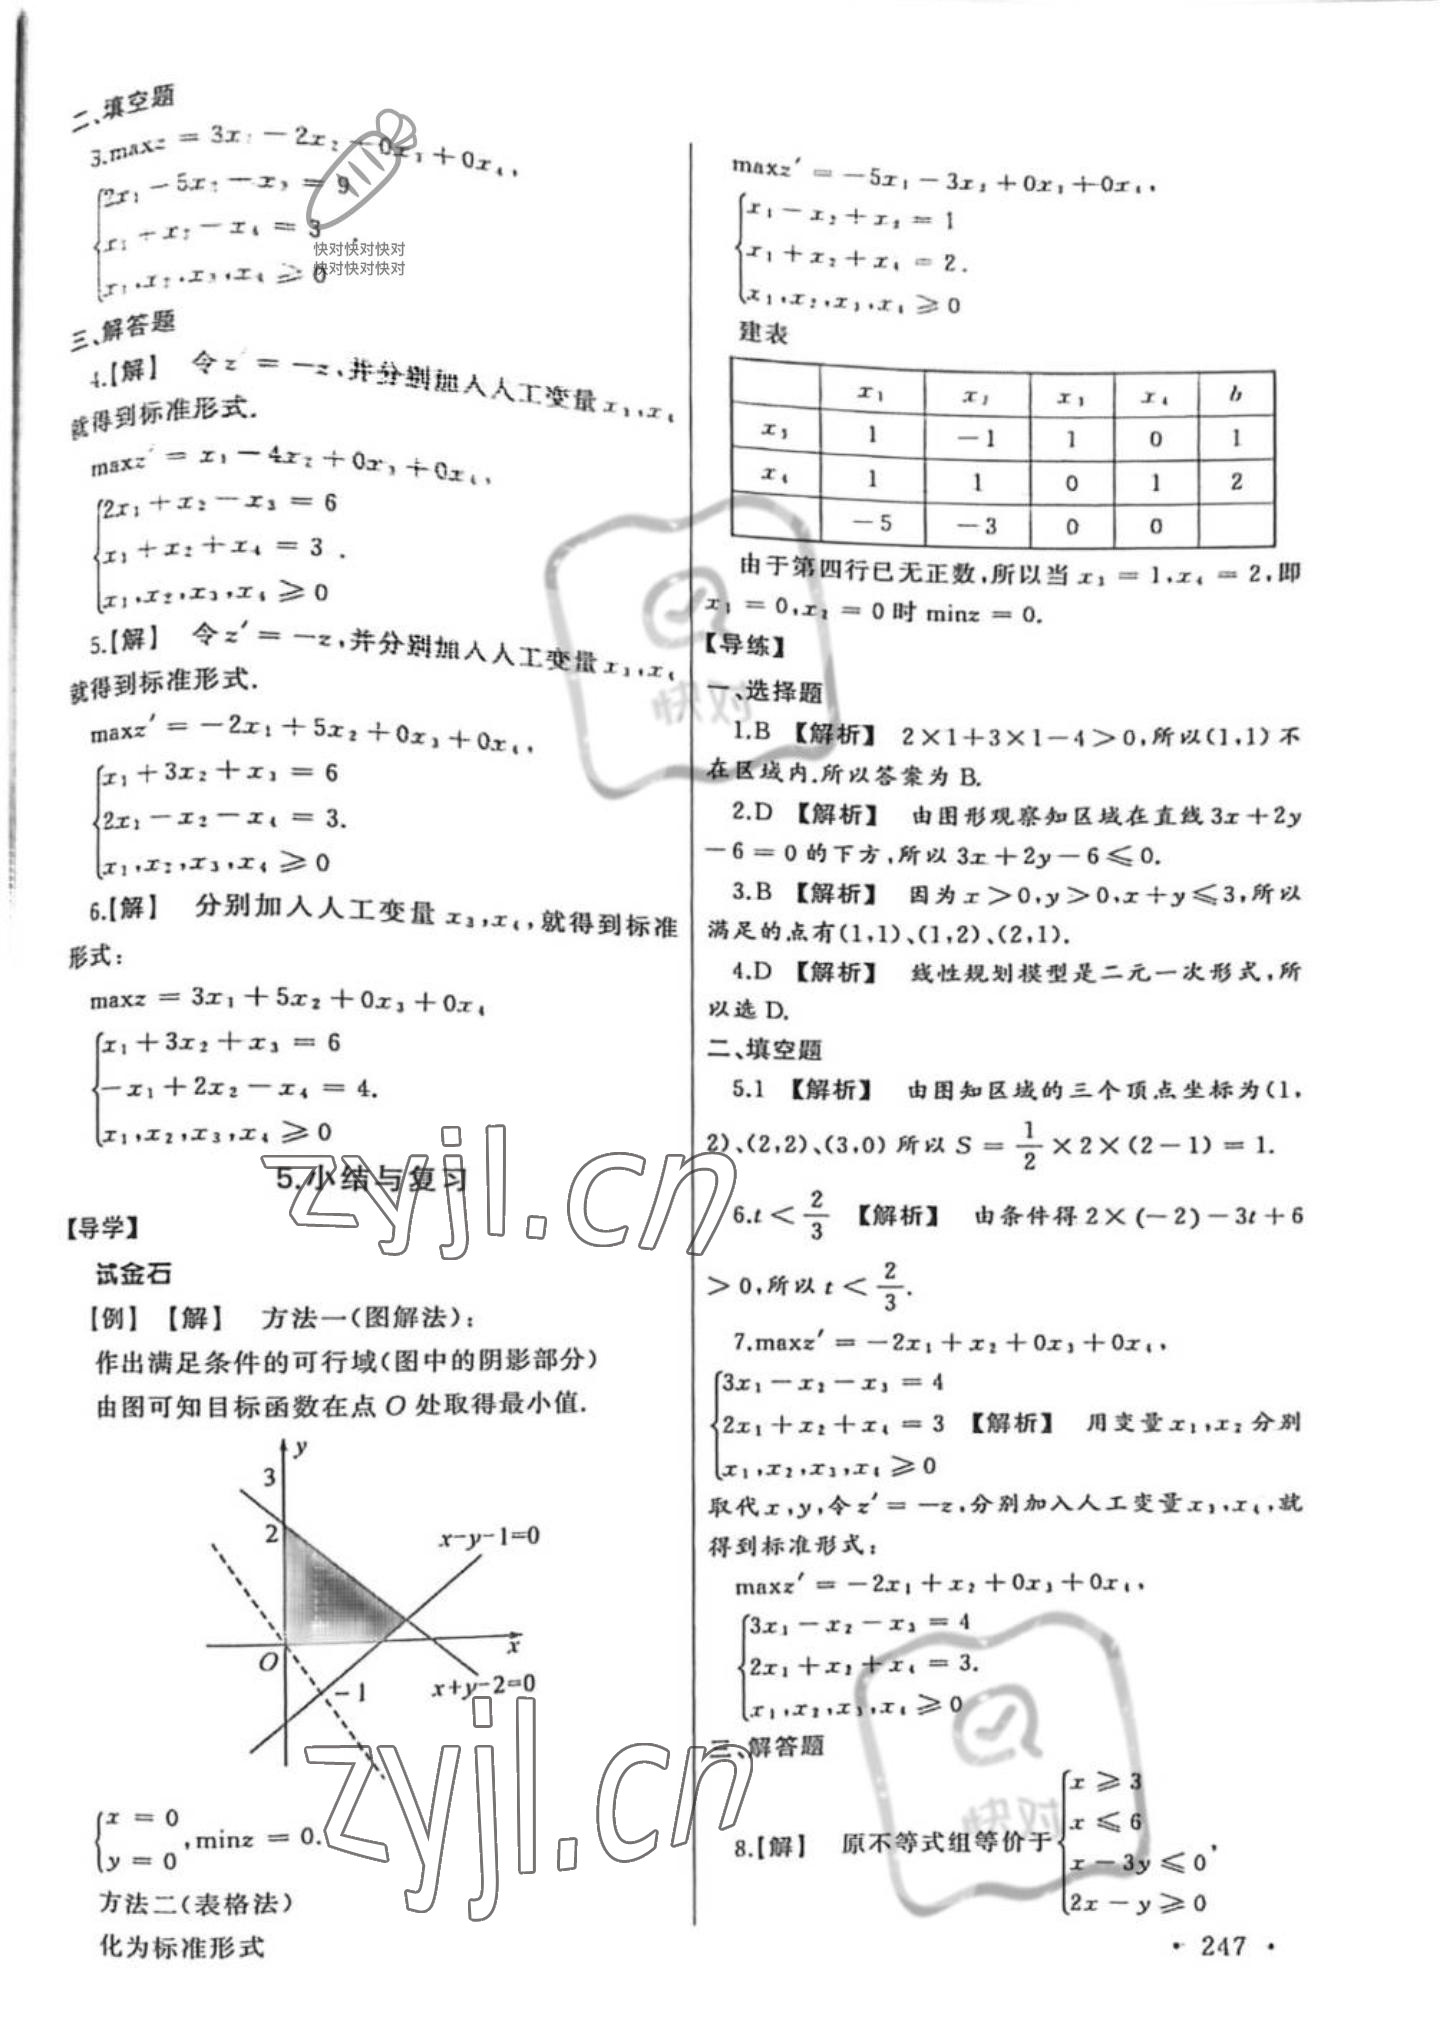 二、填空题
3.maxz = 3x₁ − 2x₂ + 0x₃ + 0x₄,
2x₁ − 5x₂ − x₃ = 9
x₁ + x₂ − x₄ = 3
x₁,x₂,x₃,x₄ ⩾ 0
三、解答题
4.【解】 令 z′ = −z,并分别加入人工变量 x₃,x₄
就得到标准形式.
maxz′ = x₁ − 4x₂ + 0x₃ + 0x₄,
2x₁ + x₂ − x₃ = 6
x₁ + x₂ + x₄ = 3 .
x₁,x₂,x₃,x₄ ⩾ 0
5.【解】 令 z′ = −z,并分别加入人工变量 x₃,x₄
就得到标准形式.
maxz′ = −2x₁ + 5x₂ + 0x₃ + 0x₄,
x₁ + 3x₂ + x₃ = 6
2x₁ − x₂ − x₄ = 3.
x₁,x₂,x₃,x₄ ⩾ 0
6.【解】 分别加入人工变量 x₃,x₄,就得到标准
形式:
maxz = 3x₁ + 5x₂ + 0x₃ + 0x₄
x₁ + 3x₂ + x₃ = 6
−x₁ + 2x₂ − x₄ = 4.
x₁,x₂,x₃,x₄ ⩾ 0
5.小结与复习
【导学】
试金石
【例】 【解】 方法一(图解法):
作出满足条件的可行域(图中的阴影部分)
由图可知目标函数在点 O 处取得最小值.
y
3
2
x−y−1=0
O
x
−1
x+y−2=0
x = 0
y = 0
,minz = 0.
方法二(表格法)
化为标准形式
maxz′ = −5x₁ − 3x₂ + 0x₃ + 0x₄,
x₁ − x₂ + x₃ = 1
x₁ + x₂ + x₄ = 2.
x₁,x₂,x₃,x₄ ⩾ 0
建表
x₁ x₂ x₃ x₄ b
x₃ 1 −1 1 0 1
x₄ 1 1 0 1 2
−5 −3 0 0
由于第四行已无正数,所以当 x₃ = 1,x₄ = 2,即
x₁ = 0,x₂ = 0 时 minz = 0.
【导练】
一、选择题
1.B 【解析】 2×1+3×1−4>0,所以(1,1)不
在区域内.所以答案为 B.
2.D 【解析】 由图形观察知区域在直线 3x+2y
−6=0 的下方,所以 3x+2y−6⩽0.
3.B 【解析】 因为 x>0,y>0,x+y⩽3,所以
满足的点有(1,1)、(1,2)、(2,1).
4.D 【解析】 线性规划模型是二元一次形式,所
以选 D.
二、填空题
5.1 【解析】 由图知区域的三个顶点坐标为(1,
2)、(2,2)、(3,0)所以 S = 1/2 ×2×(2−1) = 1.
6.t < 2/3 【解析】 由条件得 2×(−2)−3t+6
>0,所以 t < 2/3.
7.maxz′ = −2x₁ + x₂ + 0x₃ + 0x₄,
3x₁ − x₂ − x₃ = 4
2x₁ + x₂ + x₄ = 3 【解析】 用变量 x₁,x₂ 分别
x₁,x₂,x₃,x₄ ⩾ 0
取代 x,y,令 z′ = −z,分别加入人工变量 x₃,x₄,就
得到标准形式:
maxz′ = −2x₁ + x₂ + 0x₃ + 0x₄,
3x₁ − x₂ − x₃ = 4
2x₁ + x₂ + x₄ = 3.
x₁,x₂,x₃,x₄ ⩾ 0
三、解答题
x ⩾ 3
x ⩽ 6
8.【解】 原不等式组等价于
x − 3y ⩽ 0,
2x − y ⩾ 0
· 247 ·
快对快对快对
快对快对快对
快对
快对
zyjl.cn
zyjl.cn